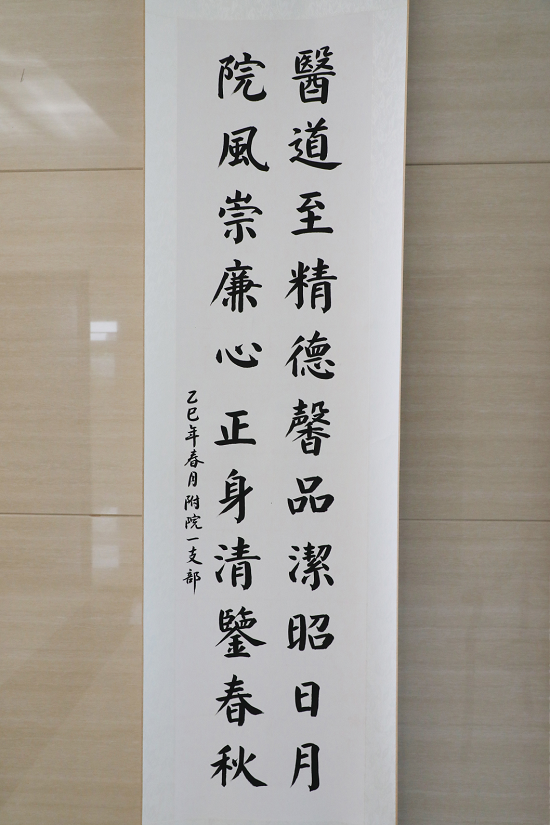 醫道至精德馨品潔昭日月
院風崇廉心正身清鑒春秋
乙巳年春月附院一支部